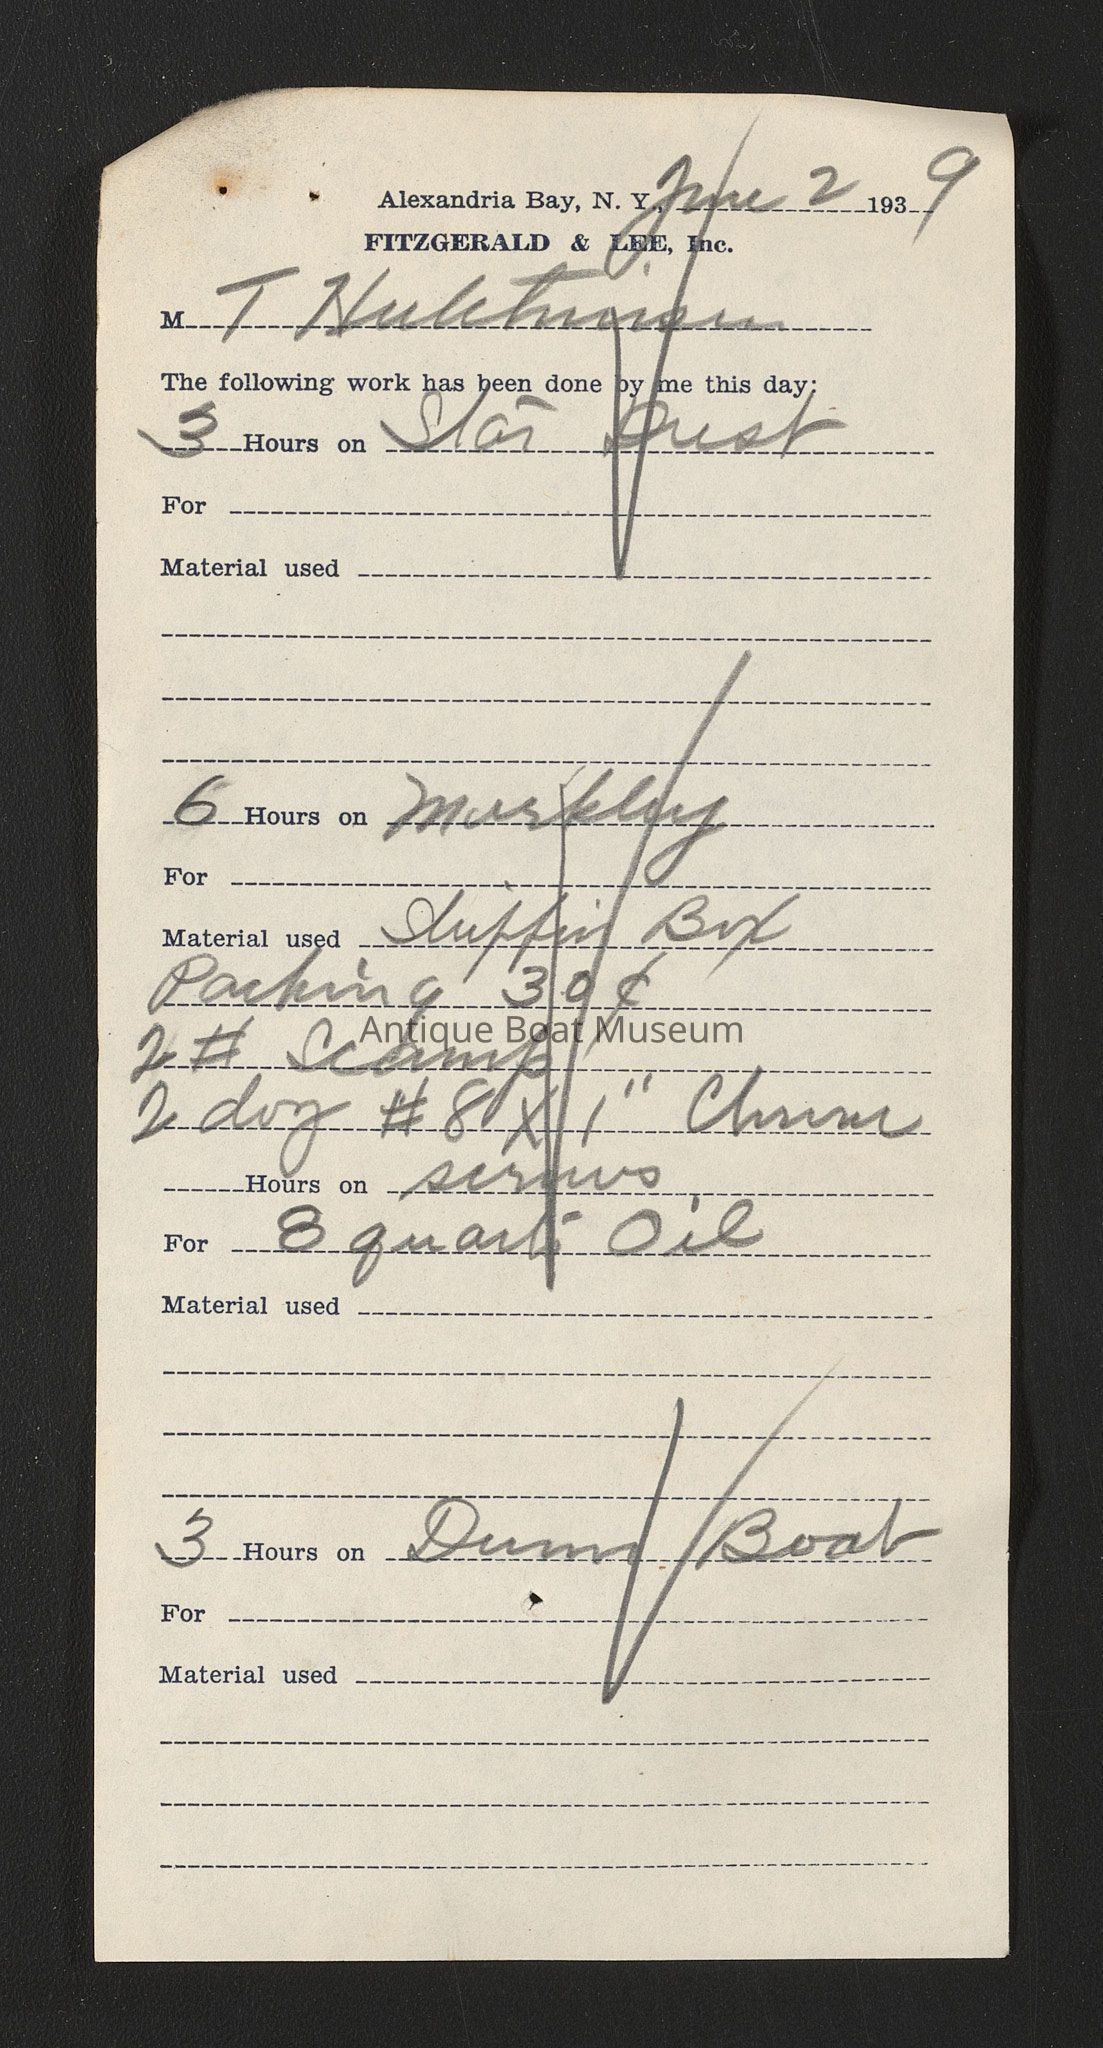 Alexandria Bay, N. Y., June 2 1939
FITZGERALD & LEE, Inc.
M T Hutchinson
The following work has been done by me this day:
3 Hours on Star Dust
For
Material used
6 Hours on Markley
For
Material used Stuffin Box
Packing 30¢
Antique Boat Museum
2 #
2 doz #8 X 1" Chrome
Hours on screws
For 8 quarts Oil
Material used
3 Hours on Dunn Boat
For
Material used